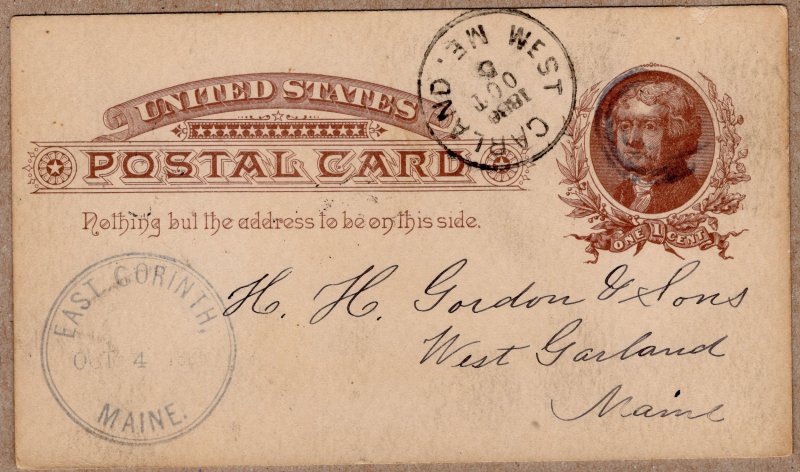 UNITED STATES
POSTAL CARD
Nothing but the address to be on this side.
WEST GARLAND. ME
OCT
ONE 1 CENT
EAST CORINTH,
OCT 4
MAINE.
H. H. Gordon & Sons
West Garland
Maine